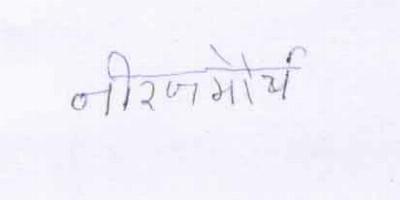 नीरज मौर्य